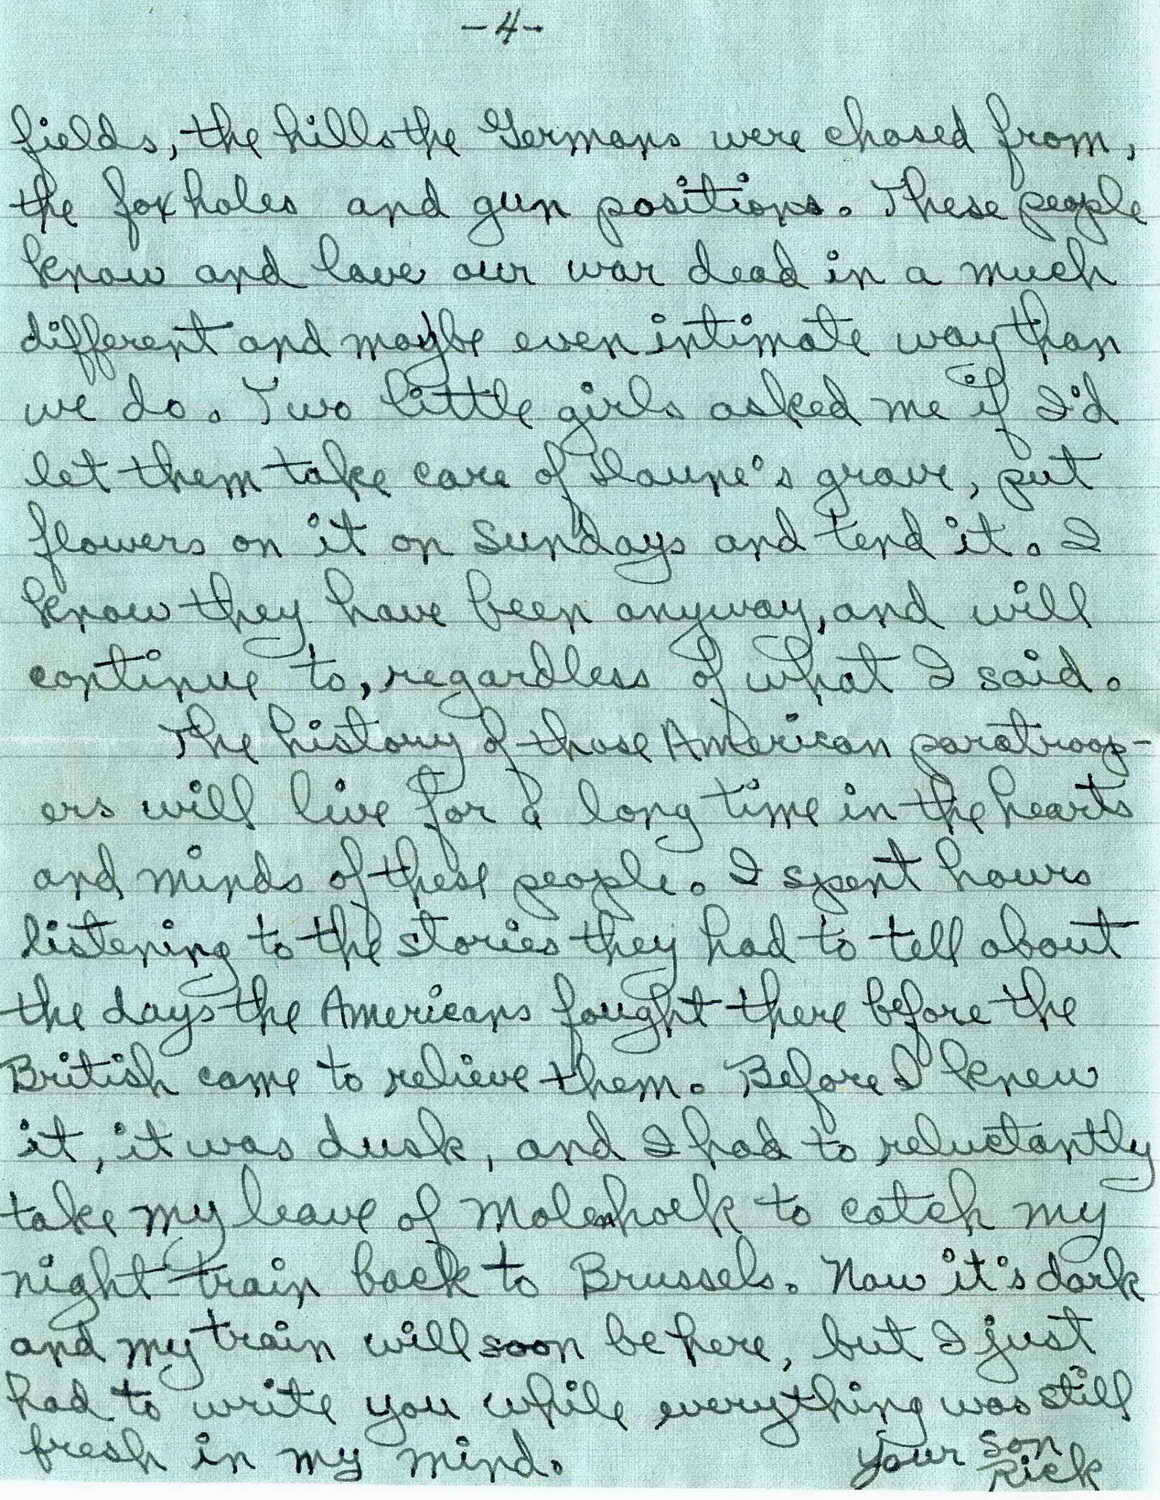 -4-
fields, the hills the Germans were chased from,
the foxholes and gun positions. These people
know and love our war dead in a much
different and maybe even intimate way than
we do. Two little girls asked me if I'd
let them take care of Daune's grave, put
flowers on it on Sundays and tend it. I
know they have been anyway, and will
continue to, regardless of what I said.
The history of those American paratroop-
ers will live for a long time in the hearts
and minds of these people. I spent hours
listening to the stories they had to tell about
the days the Americans fought there before the
British came to relieve them. Before I knew
it, it was dusk, and I had to reluctantly
take my leave of Molenhoek to catch my
night train back to Brussels. Now it's dark
and my train will soon be here, but I just
had to write you while everything was still
fresh in my mind.
Your son
Rick